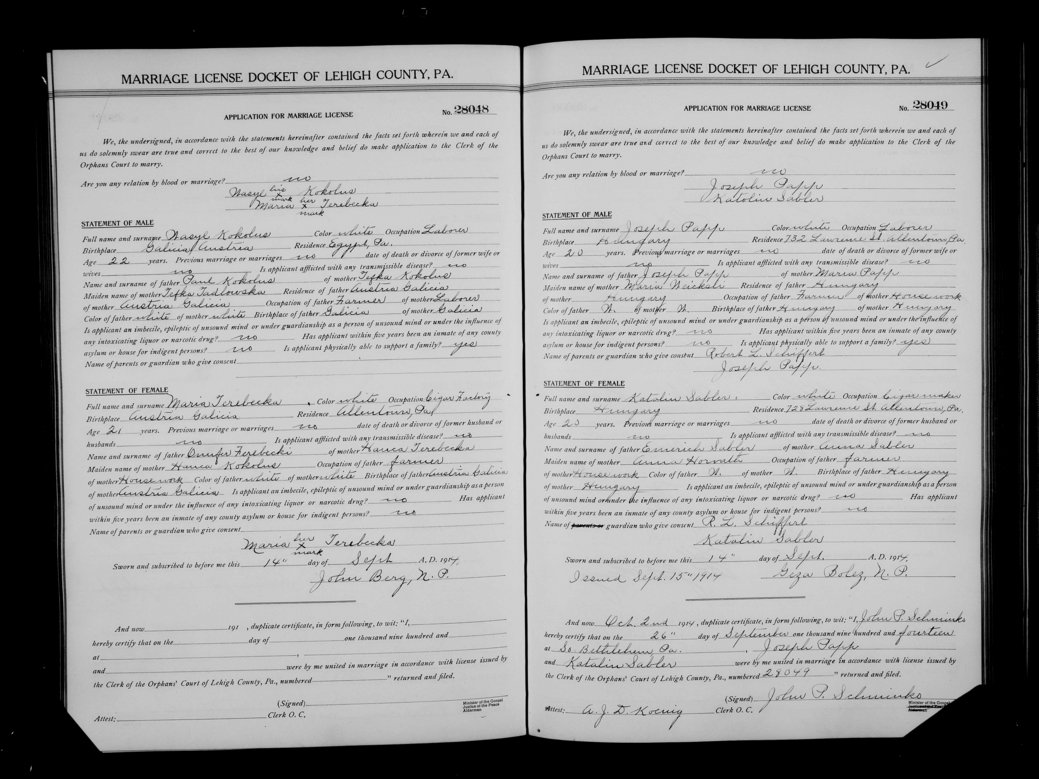 MARRIAGE LICENSE DOCKET OF LEHIGH COUNTY, PA.
APPLICATION FOR MARRIAGE LICENSE
No. 28048
We, the undersigned, in accordance with the statements hereinafter contained the facts set forth wherein we and each of
us do solemnly swear are true and correct to the best of our knowledge and belief do make application to the Clerk of the
Orphans Court to marry.
Are you any relation by blood or marriage? no
Wasyl his Kokolus
mark
Maria her x Terebecka
mark
STATEMENT OF MALE
Full name and surname Wasyl Kokolus Color white Occupation Laborer
Birthplace Galicia Austria Residence Egypt, Pa.
Age 22 years. Previous marriage or marriages no date of death or divorce of former wife or
wives no Is applicant afflicted with any transmissible disease? no
Name and surname of father Paul Kokolus of mother Tefka Kokolus
Maiden name of mother Tefka Tadlowska Residence of father Austria Galicia
of mother Austria Galicia Occupation of father Farmer of mother Laborer
Color of father white of mother white Birthplace of father Galicia of mother Galicia
Is applicant an imbecile, epileptic of unsound mind or under guardianship as a person of unsound mind or under the influence of
any intoxicating liquor or narcotic drug? no Has applicant within five years been an inmate of any county
asylum or house for indigent persons? no Is applicant physically able to support a family? yes
Name of parents or guardian who give consent
STATEMENT OF FEMALE
Full name and surname Maria Terebecka Color white Occupation Cigar Factory
Birthplace Austria Galicia Residence Allentown, Pa
Age 21 years. Previous marriage or marriages no date of death or divorce of former husband or
husbands no Is applicant afflicted with any transmissible disease? no
Name and surname of father Terebecki of mother Hanca Terebecka
Maiden name of mother Hanca Kokolus Occupation of father farmer
of mother Housework Color of father white of mother white Birthplace of father Austria Galicia
of mother Austria Galicia Is applicant an imbecile, epileptic of unsound mind or under guardianship as a person
of unsound mind or under the influence of any intoxicating liquor or narcotic drug? no Has applicant
within five years been an inmate of any county asylum or house for indigent persons? no
Name of parents or guardian who give consent
Maria her x Terebecka
mark
Sworn and subscribed to before me this 14" day of Sept A. D. 1914
John Berg, N. P.
And now 191 , duplicate certificate, in form following, to wit: "I,
hereby certify that on the day of one thousand nine hundred and
at ,
and were by me united in marriage in accordance with license issued by
the Clerk of the Orphans' Court of Lehigh County, Pa., numbered " returned and filed.
(Signed)
Minister of the Gospel
Justice of the Peace
Alderman
Attest: Clerk O. C.
MARRIAGE LICENSE DOCKET OF LEHIGH COUNTY, PA.
APPLICATION FOR MARRIAGE LICENSE
No. 28049
We, the undersigned, in accordance with the statements hereinafter contained the facts set forth wherein we and each of
us do solemnly swear are true and correct to the best of our knowledge and belief do make application to the Clerk of the
Orphans Court to marry.
Are you any relation by blood or marriage? no
Joseph Papp
Katalin Sabler
STATEMENT OF MALE
Full name and surname Joseph Papp Color white Occupation Laborer
Birthplace Hungary Residence 732 Lawrence St. Allentown, Pa
Age 20 years. Previous marriage or marriages no date of death or divorce of former wife or
wives no Is applicant afflicted with any transmissible disease? no
Name and surname of father Joseph Papp of mother Maria Papp
Maiden name of mother Maria Residence of father Hungary
of mother Hungary Occupation of father Farmer of mother Housework
Color of father W. of mother W. Birthplace of father Hungary of mother Hungary
Is applicant an imbecile, epileptic of unsound mind or under guardianship as a person of unsound mind or under the influence of
any intoxicating liquor or narcotic drug? no Has applicant within five years been an inmate of any county
asylum or house for indigent persons? no Is applicant physically able to support a family? yes
Name of parents or guardian who give consent Robert L. Schiffert
Joseph Papp
STATEMENT OF FEMALE
Full name and surname Katalin Sabler. Color white Occupation Cigar maker
Birthplace Hungary Residence 723 Lawrence St. Allentown, Pa.
Age 20 years. Previous marriage or marriages no date of death or divorce of former husband or
husbands no Is applicant afflicted with any transmissible disease? no
Name and surname of father Emerich Sabler of mother Anna Sabler
Maiden name of mother Anna Horvath Occupation of father farmer
of mother Housework Color of father W. of mother W. Birthplace of father Hungary
of mother Hungary Is applicant an imbecile, epileptic of unsound mind or under guardianship as a person
of unsound mind or under the influence of any intoxicating liquor or narcotic drug? no Has applicant
within five years been an inmate of any county asylum or house for indigent persons? no
Name of parents or guardian who give consent R. L. Schiffert
Katalin Sabler
Sworn and subscribed to before me this 14" day of Sept. A. D. 1914
Issued Sept. 15" 1914 Geza Bolez, N. P.
And now Oct. 2nd 1914 , duplicate certificate, in form following, to wit: "I, John P. Schminks
hereby certify that on the 26" day of September one thousand nine hundred and fourteen
at So. Bethlehem Pa. , Joseph Papp
and Katalin Sabler were by me united in marriage in accordance with license issued by
the Clerk of the Orphans' Court of Lehigh County, Pa., numbered 28049 " returned and filed.
(Signed) John P. Schminks
Minister of the Gospel
Justice of the Peace
Alderman
Attest: A. J. D. Koenig Clerk O. C.